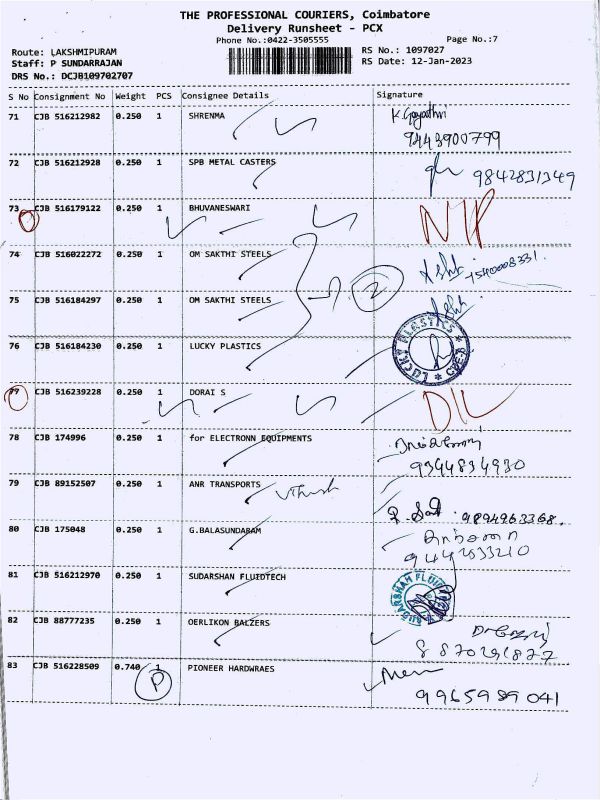 THE PROFESSIONAL COURIERS, Coimbatore
Delivery Runsheet - PCX
Phone No.:0422-3505555
Page No.:7
Route: LAKSHMIPURAM
RS No.: 1097027
Staff: P SUNDARRAJAN
RS Date: 12-Jan-2023
DRS No.: DCJB109702707
S No Consignment No Weight PCS Consignee Details Signature
71 CJB 516212982 0.250 1 SHRENMA K. Gayathri
9443900799
72 CJB 516212928 0.250 1 SPB METAL CASTERS 9842831349
73 CJB 516179122 0.250 1 BHUVANESWARI
74 CJB 516022272 0.250 1 OM SAKTHI STEELS
2
75 CJB 516184297 0.250 1 OM SAKTHI STEELS
76 CJB 516184230 0.250 1 LUCKY PLASTICS LUCKY PLASTICS
77 CJB 516239228 0.250 1 DORAI S D/L
78 CJB 174996 0.250 1 for ELECTRONN EQUIPMENTS
9344834930
79 CJB 89152507 0.250 1 ANR TRANSPORTS
9894963368.
80 CJB 175048 0.250 1 G.BALASUNDARAM
9442833210
81 CJB 516212970 0.250 1 SUDARSHAN FLUIDTECH SUDARSHAN FLUIDTECH
82 CJB 88777235 0.250 1 OERLIKON BALZERS
8870291877
83 CJB 516228509 0.740 1 PIONEER HARDWRAES
P
9965989041